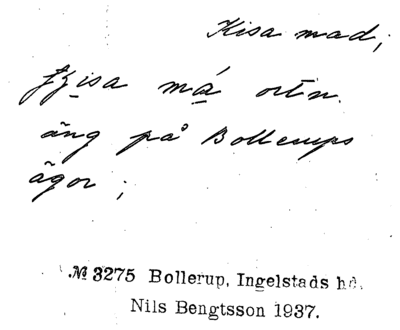 Kisa mad;
má ortn.
äng på Bollerups
ägor;
№ 3275 Bollerup, Ingelstads hd.
Nils Bengtsson 1937.